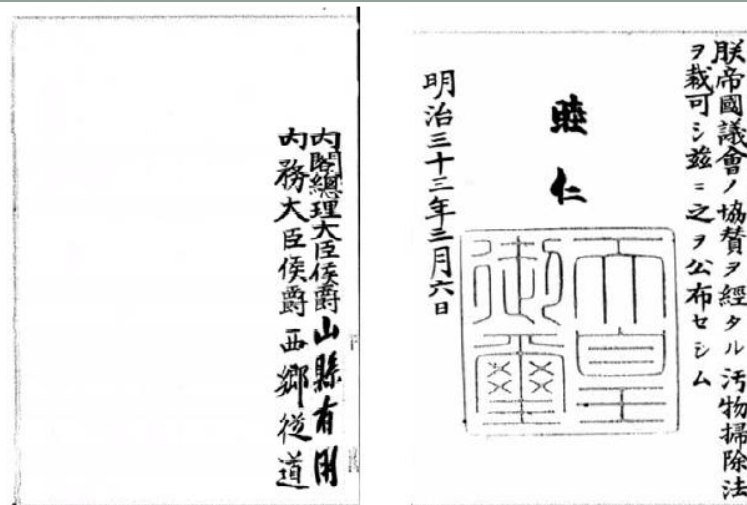 朕帝國議會ノ協賛ヲ經タル汚物掃除法
ヲ裁可シ茲ニ之ヲ公布セシム
睦仁
天皇
御璽
明治三十三年三月六日
内閣總理大臣侯爵山縣有朋
内務大臣侯爵西郷從道